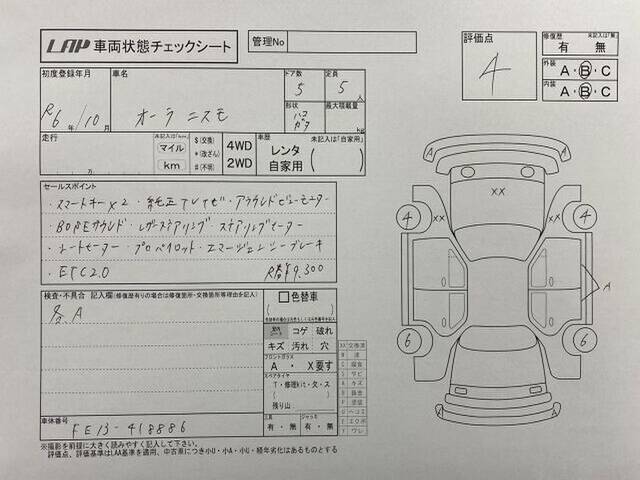 LAP 車両状態チェックシート
管理No
評価点
4
修復歴 未記入は「無」
有 ・ 無
外装 A・B・C
内装 A・B・C
初度登録年月
R6年/10月
車名
オーラ ニスモ
ドア数
5
定員
5人
形状
ハコ
ガタ
最大積載量
kg
走行
未記入は「km」
マイル
km
$(交換)
*(改ざん)
#(不明)
4WD
2WD
車歴 未記入は「自家用」
レンタ
自家用
セールスポイント
・スマートキーX2 ・純正ナビTV ・アラウンドビューモニター
・BOSEサウンド ・レザーステアリング ・ステアリングヒーター
・シートヒーター ・プロパイロット ・エマージェンシーブレーキ
・ETC2.0 R預¥9,300
検査・不具合 記入欄(修復歴有りの場合は修復箇所・交換箇所等理由を記入)
各A
色替車
室内
シート
コゲ 破れ
キズ 汚れ 穴
フロントガラス
A ・ X要す
スペアタイヤ
T・修理kit・タ・ス
残り山
工具
有・無
ジャッキ
有・無
XX 交換済
車体番号
FE13-418886
※撮影を前提に大きく読みやすく記入して下さい。
評価点、評価基準はLAA基準を適用、中古車につき小U・小A・小U・経年劣化はあるものとする
A
A
XX
4
XX
XX
4
A
6
6
A
A